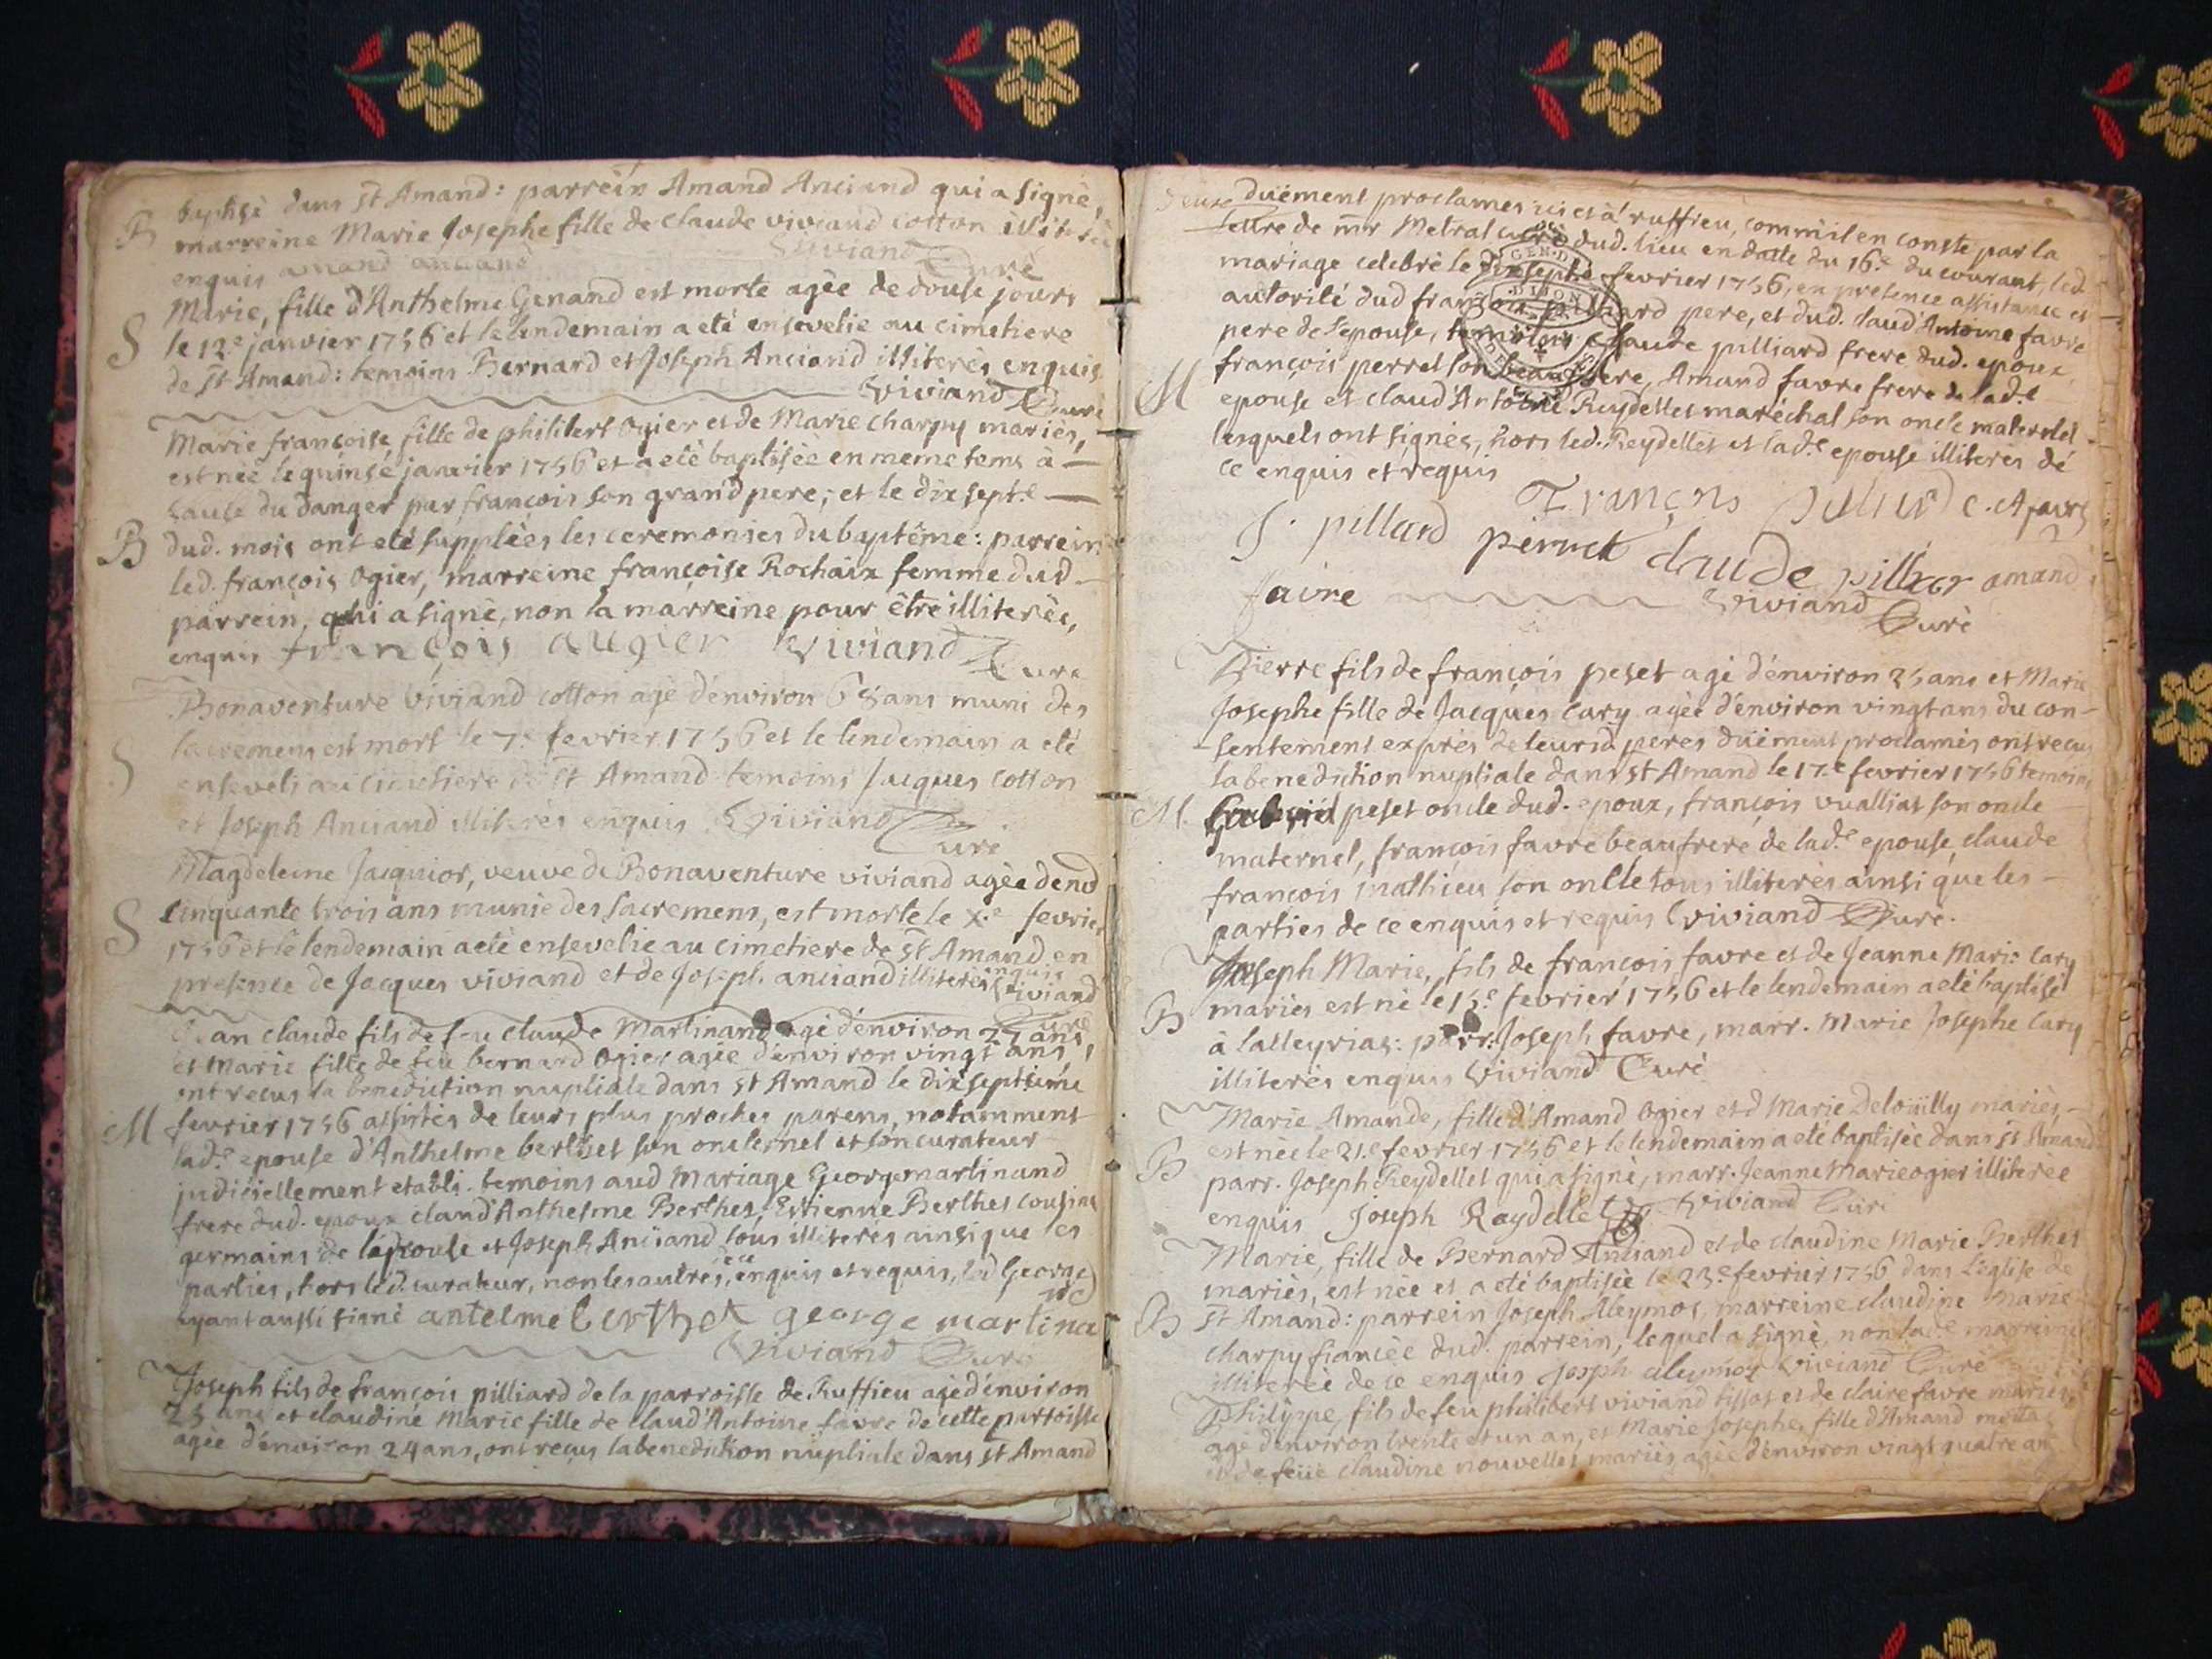 B baptisé dans St Amand: parrein Amand Anciand qui a signé,
marreine Marie Josephe fille de claude viviand cotton illiterée
enquis amand anciand Viviand Curé
Marie, fille d'Anthelme Genand est morte agée de douse jours
S le 12e janvier 1756 et le lendemain a eté ensevelie au cimetiere
de St Amand: temoins Bernard et Joseph Anciand illiterés enquis
Viviand Curé
Marie françoise, fille de philibert Ogier et de Marie charpy mariés,
est née le quinse janvier 1756 et a eté baptisée en meme tems à
cause du danger par françois son grand pere; et le dix sept.e
B dud. mois ont eté supplées les ceremonies du baptême: parrein
led. françois Ogier, marreine françoise Rochaix femme dud.
parrein, qui a signé, non la marreine pour être illiterée,
enquis françois augier Viviand Curé
Bonaventure Viviand cotton agé d'environ 68 ans muni des
sacremens est mort le 7.e fevrier 1756 et le lendemain a eté
S enseveli au cimetiere de St Amand temoins Jacques cotton
et Joseph Anciand illiterés enquis Viviand Curé
Magdeleine Jacquior, veuve de Bonaventure viviand agée d'env
cinquante trois ans munie des sacremens, est morte le X.e fevrier
S 1756 et le lendemain a eté ensevelie au cimetiere de St Amand en
presence de Jacques viviand et de Joseph anciand illiterés enquis
Viviand Curé
Jean claude fils de feu claude Martinand agé d'environ 27 ans
et Marie fille de feu bernard Ogier agée d'environ vingt ans,
ont reçus la benediction nuptiale dans St Amand le dixseptieme
M fevrier 1756 assistés de leurs plus proches parens, notamment
lad.e epouse d'Anthelme berthet son oncle et son curateur
judiciellement etabli. temoins aud mariage George martinand
frere dud. epoux claud'Anthelme Berthet, Estienne Berthet cousins
germains de l'epouse et Joseph Anciand tous illiterés ainsi que les
parties, hors led. curateur, non les autres, de ce enquis et requis, led George
ayant aussi signé antelme berthet george martina nd
Viviand Curé
Joseph fils de françois pilliard de la parroisse de Ruffieu agé d'environ
25 ans et claudine Marie fille de claud'Antoine favre de cette parroisse
agée d'environ 24 ans, ont reçus la benediction nuptiale dans St Amand
duëment proclames ici et à ruffieu, comm'il en conste par la
lettre de mr Metral curé dud. lieu en datte du 16.e du courant, led.
mariage celebré le dixsept.e fevrier 1756, en presence assistance et
autorité dud françois pilliard pere, et dud. claud'Antoine favre
pere de l'epouse, temoins claude pilliard frere dud. epoux,
françois perret son beaufrere, Amand favre frere de lad.e
M epouse et claud'Antoine Reydellet maréchal son oncle maternel
lesquels ont signés, hors led. Reydellet et lad.e epouse illiteres de
ce enquis et requis
françois pilliard c. A favre
J. pillard perret claude pillier amand
favre Viviand Curé
Pierre fils de françois peset agé d'environ 25 ans et Marie
Josephe fille de Jacques cary agée d'environ vingt ans du con-
sentement exprés de leursd. peres duëment proclamés ont reçus
la benediction nuptiale dans St Amand le 17.e fevrier 1756 temoins
M. peset oncle dud. epoux, françois vualliat son oncle
maternel, françois favre beaufrere de lad.e epouse, claude
françois mathieu son oncle tous illiterés ainsi que les
parties de ce enquis et requis Viviand Curé.
Joseph Marie, fils de françois favre et de Jeanne Marie Cary
B mariés est né le 15.e fevrier 1756 et le lendemain a eté baptisé
à lalleyriat: parr. Joseph favre, marr. Marie Josephe Cary
illiterés enquis Viviand Curé
Marie Amande, fille d'Amand Ogier et d Marie Deloüilly mariés
B est née le 21.e fevrier 1756 et le lendemain a eté baptisée dans St Amand
parr. Joseph Reydellet qui a signé, marr. Jeanne Marie ogier illiterée
enquis Joseph Raydellet Viviand Curé
Marie, fille de Bernard Anciand et de claudine Marie Berthet
mariés, est née et a eté baptisée le 23.e fevrier 1756 dans l'eglise de
B St Amand: parrein Joseph Aleymos, marreine claudine Marie
charpy fiancée dud. parrein, lequel a signé, non lad.e marreine
illiterée de ce enquis Joseph aleymos Viviand Curé
Philippe, fils de feu philibert viviand tissot et de claire favre mariés
agé d'environ trente et un an, et Marie Josephe, fille d'Amand
et de feüe claudine nouvellet mariés, agée d'environ vingt quatre ans